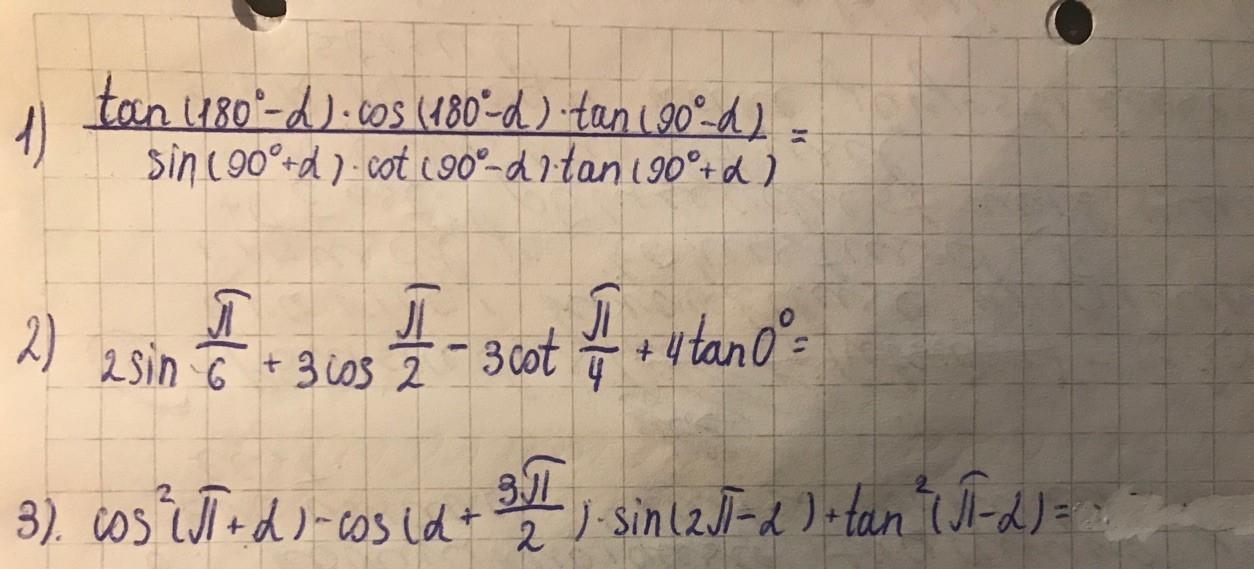 1) tan(180°-α)·cos(180°-α)·tan(90°-α) =
sin(90°+α)·cot(90°-α)·tan(90°+α)
2) 2sin π/6 + 3cos π/2 - 3cot π/4 + 4tan0° =
3). cos²(π+α)-cos(α+ 3π/2)·sin(2π-α)+tan²(π-α)=